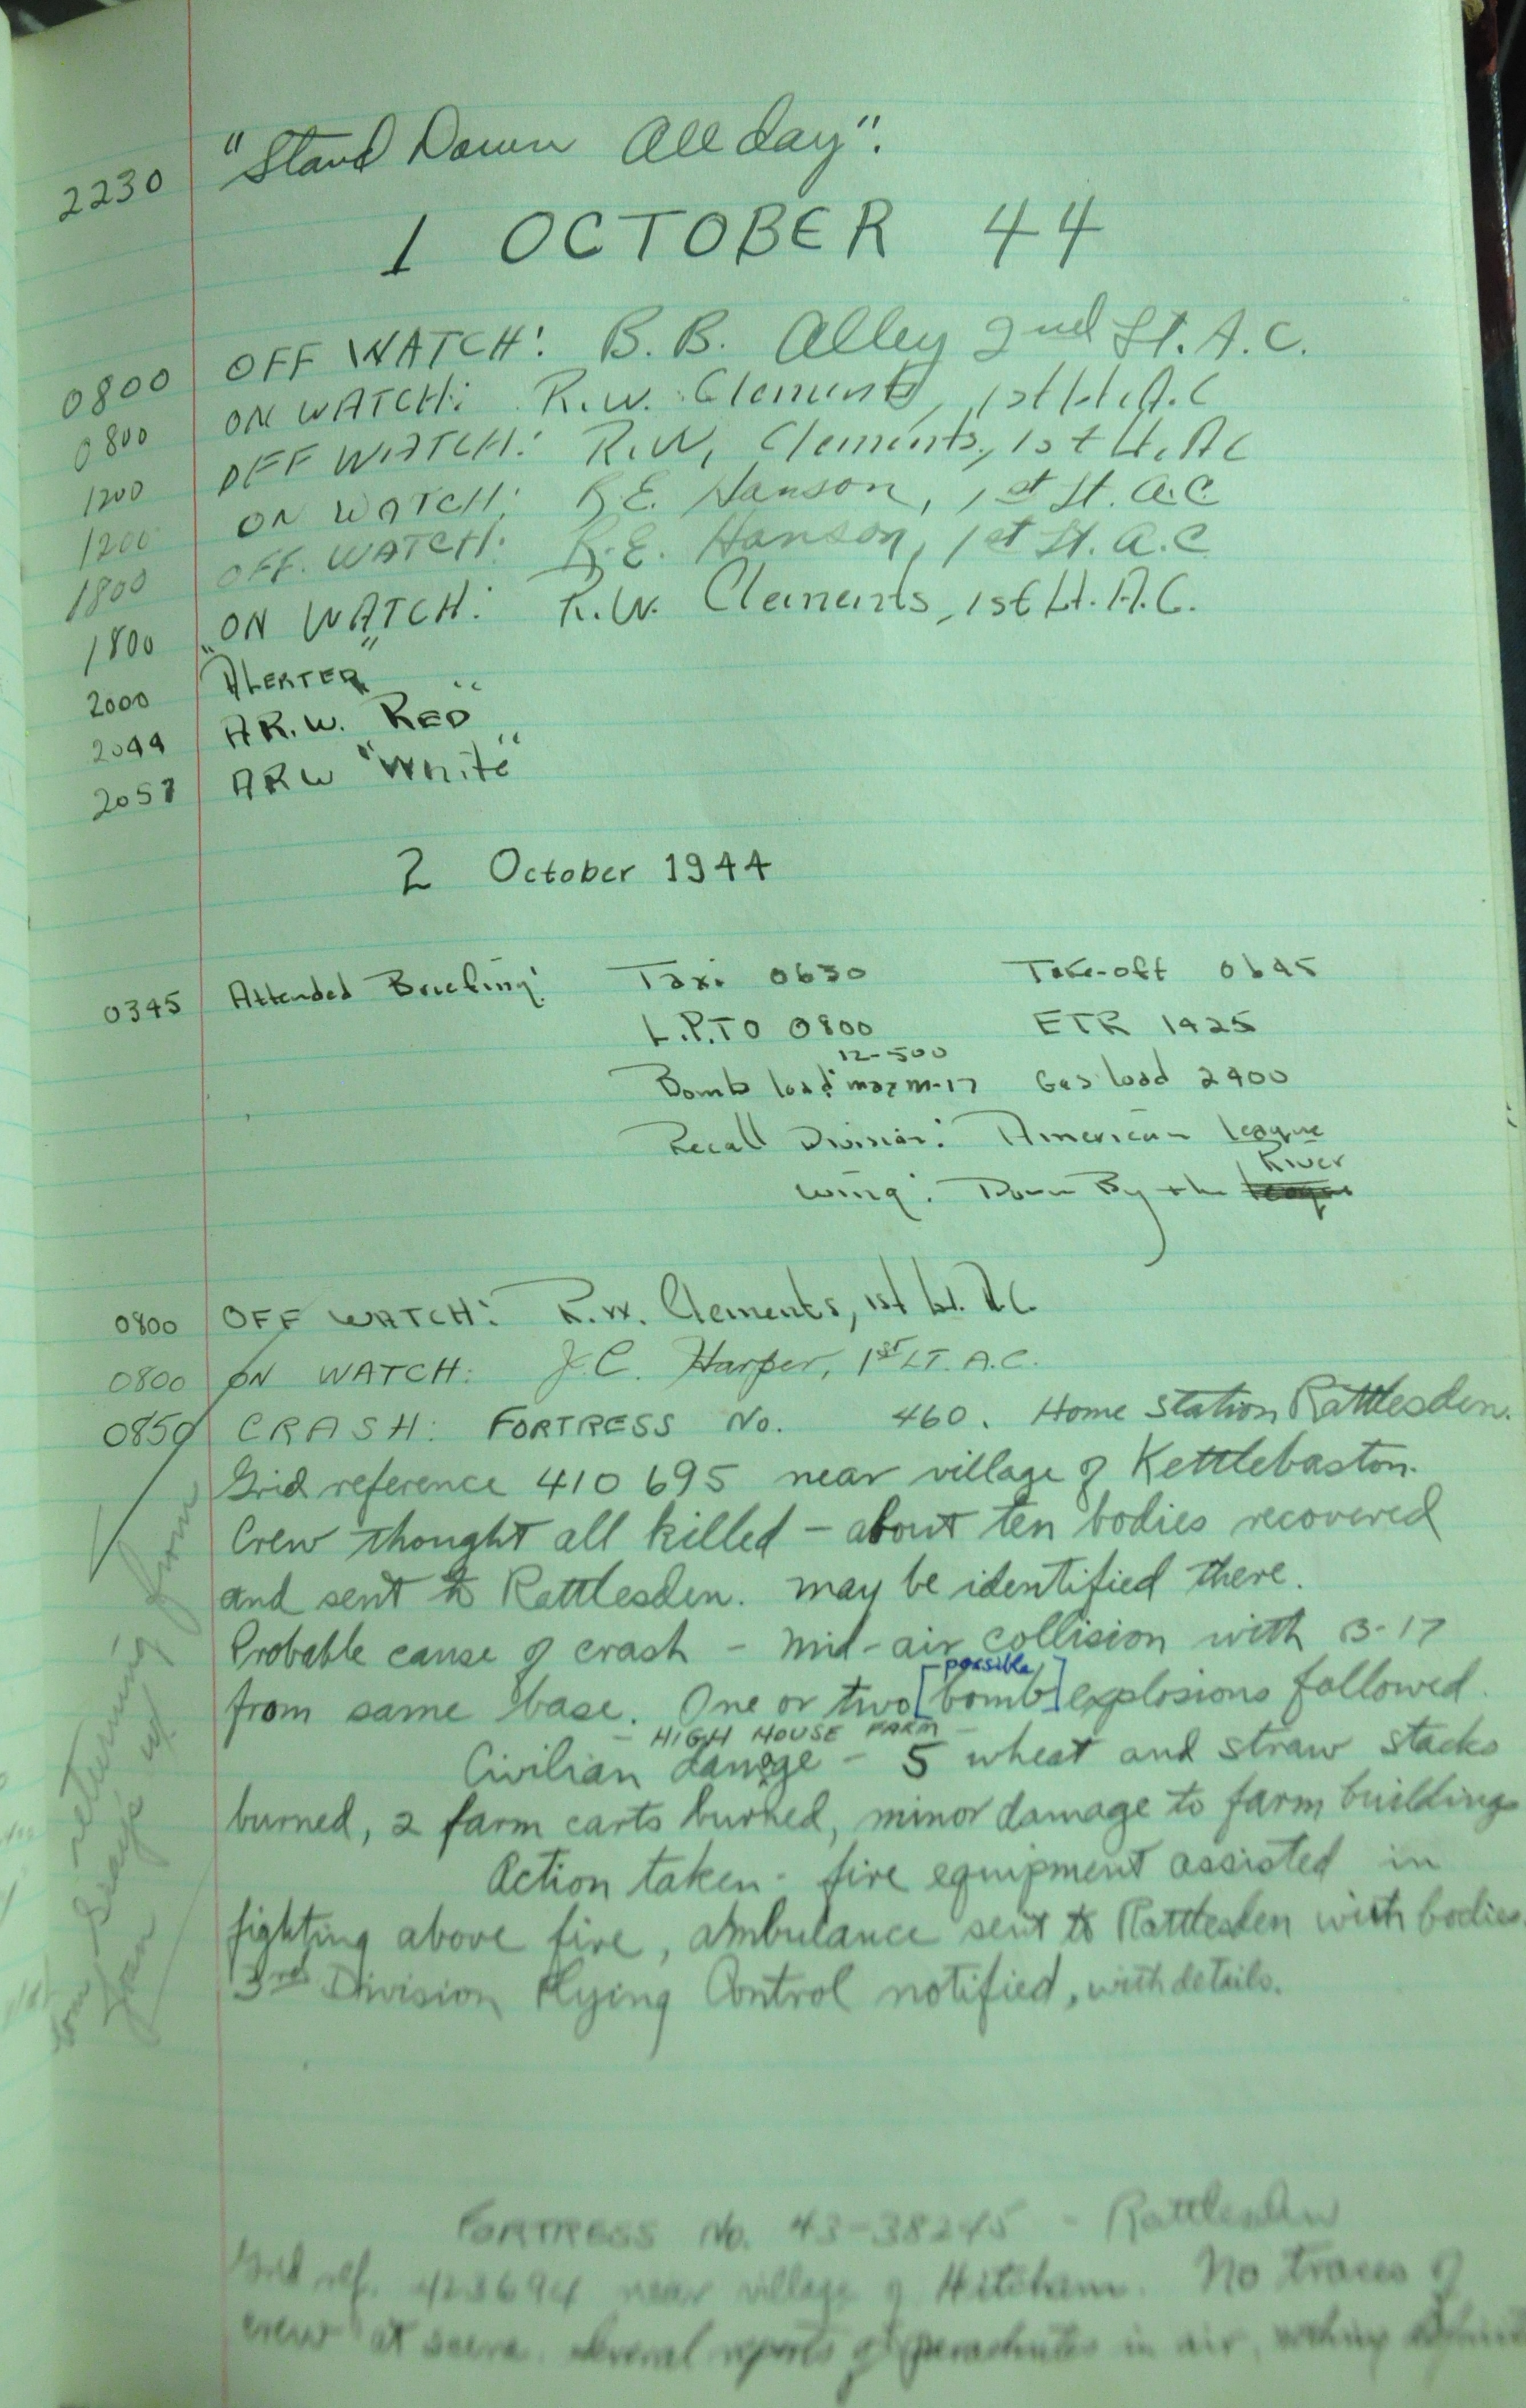 2230 "Stand Down All day".
1 OCTOBER 44
0800 OFF WATCH: B.B. Alley 2nd Lt. A.C.
0800 ON WATCH: R.W. Clements, 1st Lt. A.C
1200 OFF WATCH: R.W. Clements, 1st Lt. AC
1200 ON WATCH: R.E. Hanson, 1st Lt. A.C
1800 OFF. WATCH: R.E. Hanson, 1st Lt. A.C
1800 ON WATCH: R.W. Clements, 1st Lt. A.C.
2000 "ALERTED"
2044 A.R.W. "RED"
2057 ARW "White"
2 October 1944
0345 Attended Briefing: Taxi 0630 Take-off 0645
L.P.TO 0800 ETR 1425
12-500
Bomb load: M-17 Gas load 2400
Recall Division: American League
River
Wing: Down By the
0800 OFF WATCH: R.W. Clements, 1st Lt. A.C.
0800 ON WATCH: J.C. Harper, 1ST LT. A.C.
0850 CRASH: FORTRESS No. 460. Home Station Rattlesden.
Grid reference 410 695 near village of Kettlebaston.
Crew thought all killed - about ten bodies recovered
and sent to Rattlesden. may be identified there.
Probable cause of crash - mid-air collision with B-17
possible
from same base. One or two [bomb] explosions followed.
- HIGH HOUSE FARM -
Civilian damage - 5 wheat and straw stacks
burned, 2 farm carts burned, minor damage to farm buildings
Action taken - fire equipment assisted in
fighting above fire, ambulance sent to Rattlesden with bodies.
3rd Division Flying Control notified, with details.
returning from
FORTRESS No. 43-38245 - Rattlesden
Grid ref. 423694 near village of Hitcham. No traces of
crew at scene. Several reports of parachutes in air,